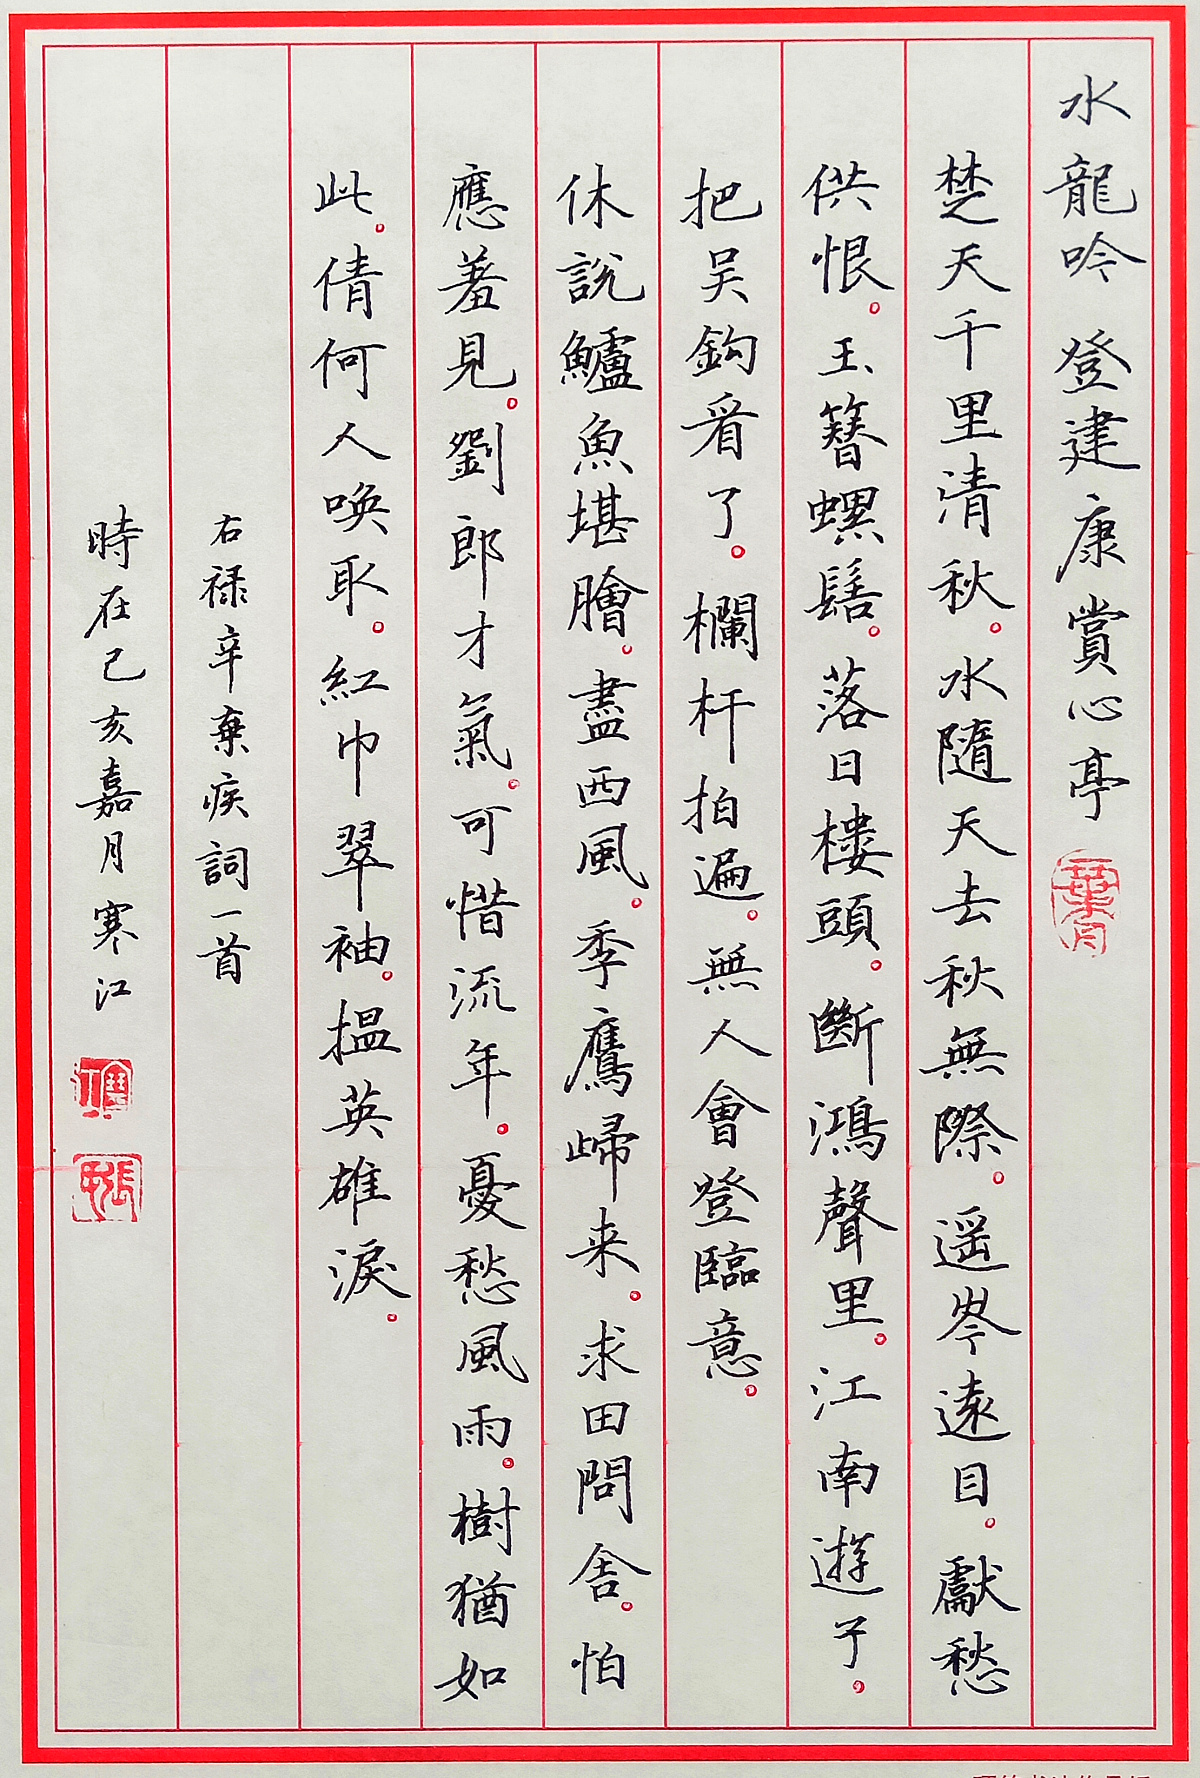 水龍吟 登建康賞心亭
楚天千里清秋。水隨天去秋無際。遥岑遠目。獻愁
供恨。玉簪螺髻。落日樓頭。斷鴻聲里。江南遊子。
把吴鈎看了。欄杆拍遍。無人會登臨意。
休說鱸魚堪膾。盡西風。季鷹歸来。求田問舍。怕
應羞見。劉郎才氣。可惜流年。憂愁風雨。樹猶如
此。倩何人唤取。紅巾翠袖。揾英雄淚。
右禄辛棄疾詞一首
時在己亥嘉月寒江